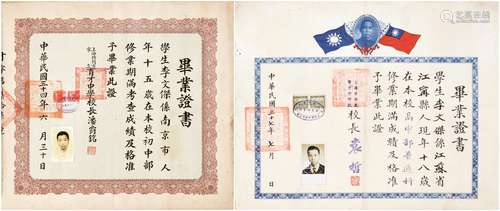 畢業證書
學生李文傑係南京市人
年十五歲在本校初中部
修業期滿考查成績及格准
予畢業此證
育才中學校長潘
中華民國三十四年六月三十日
畢業證書
學生李文傑係江蘇省
江寧縣人現年十八歲
在本校高中部普通科
修業期滿成績及格准
予畢業此證
校長袁哲
中華民國三十七年七月 日